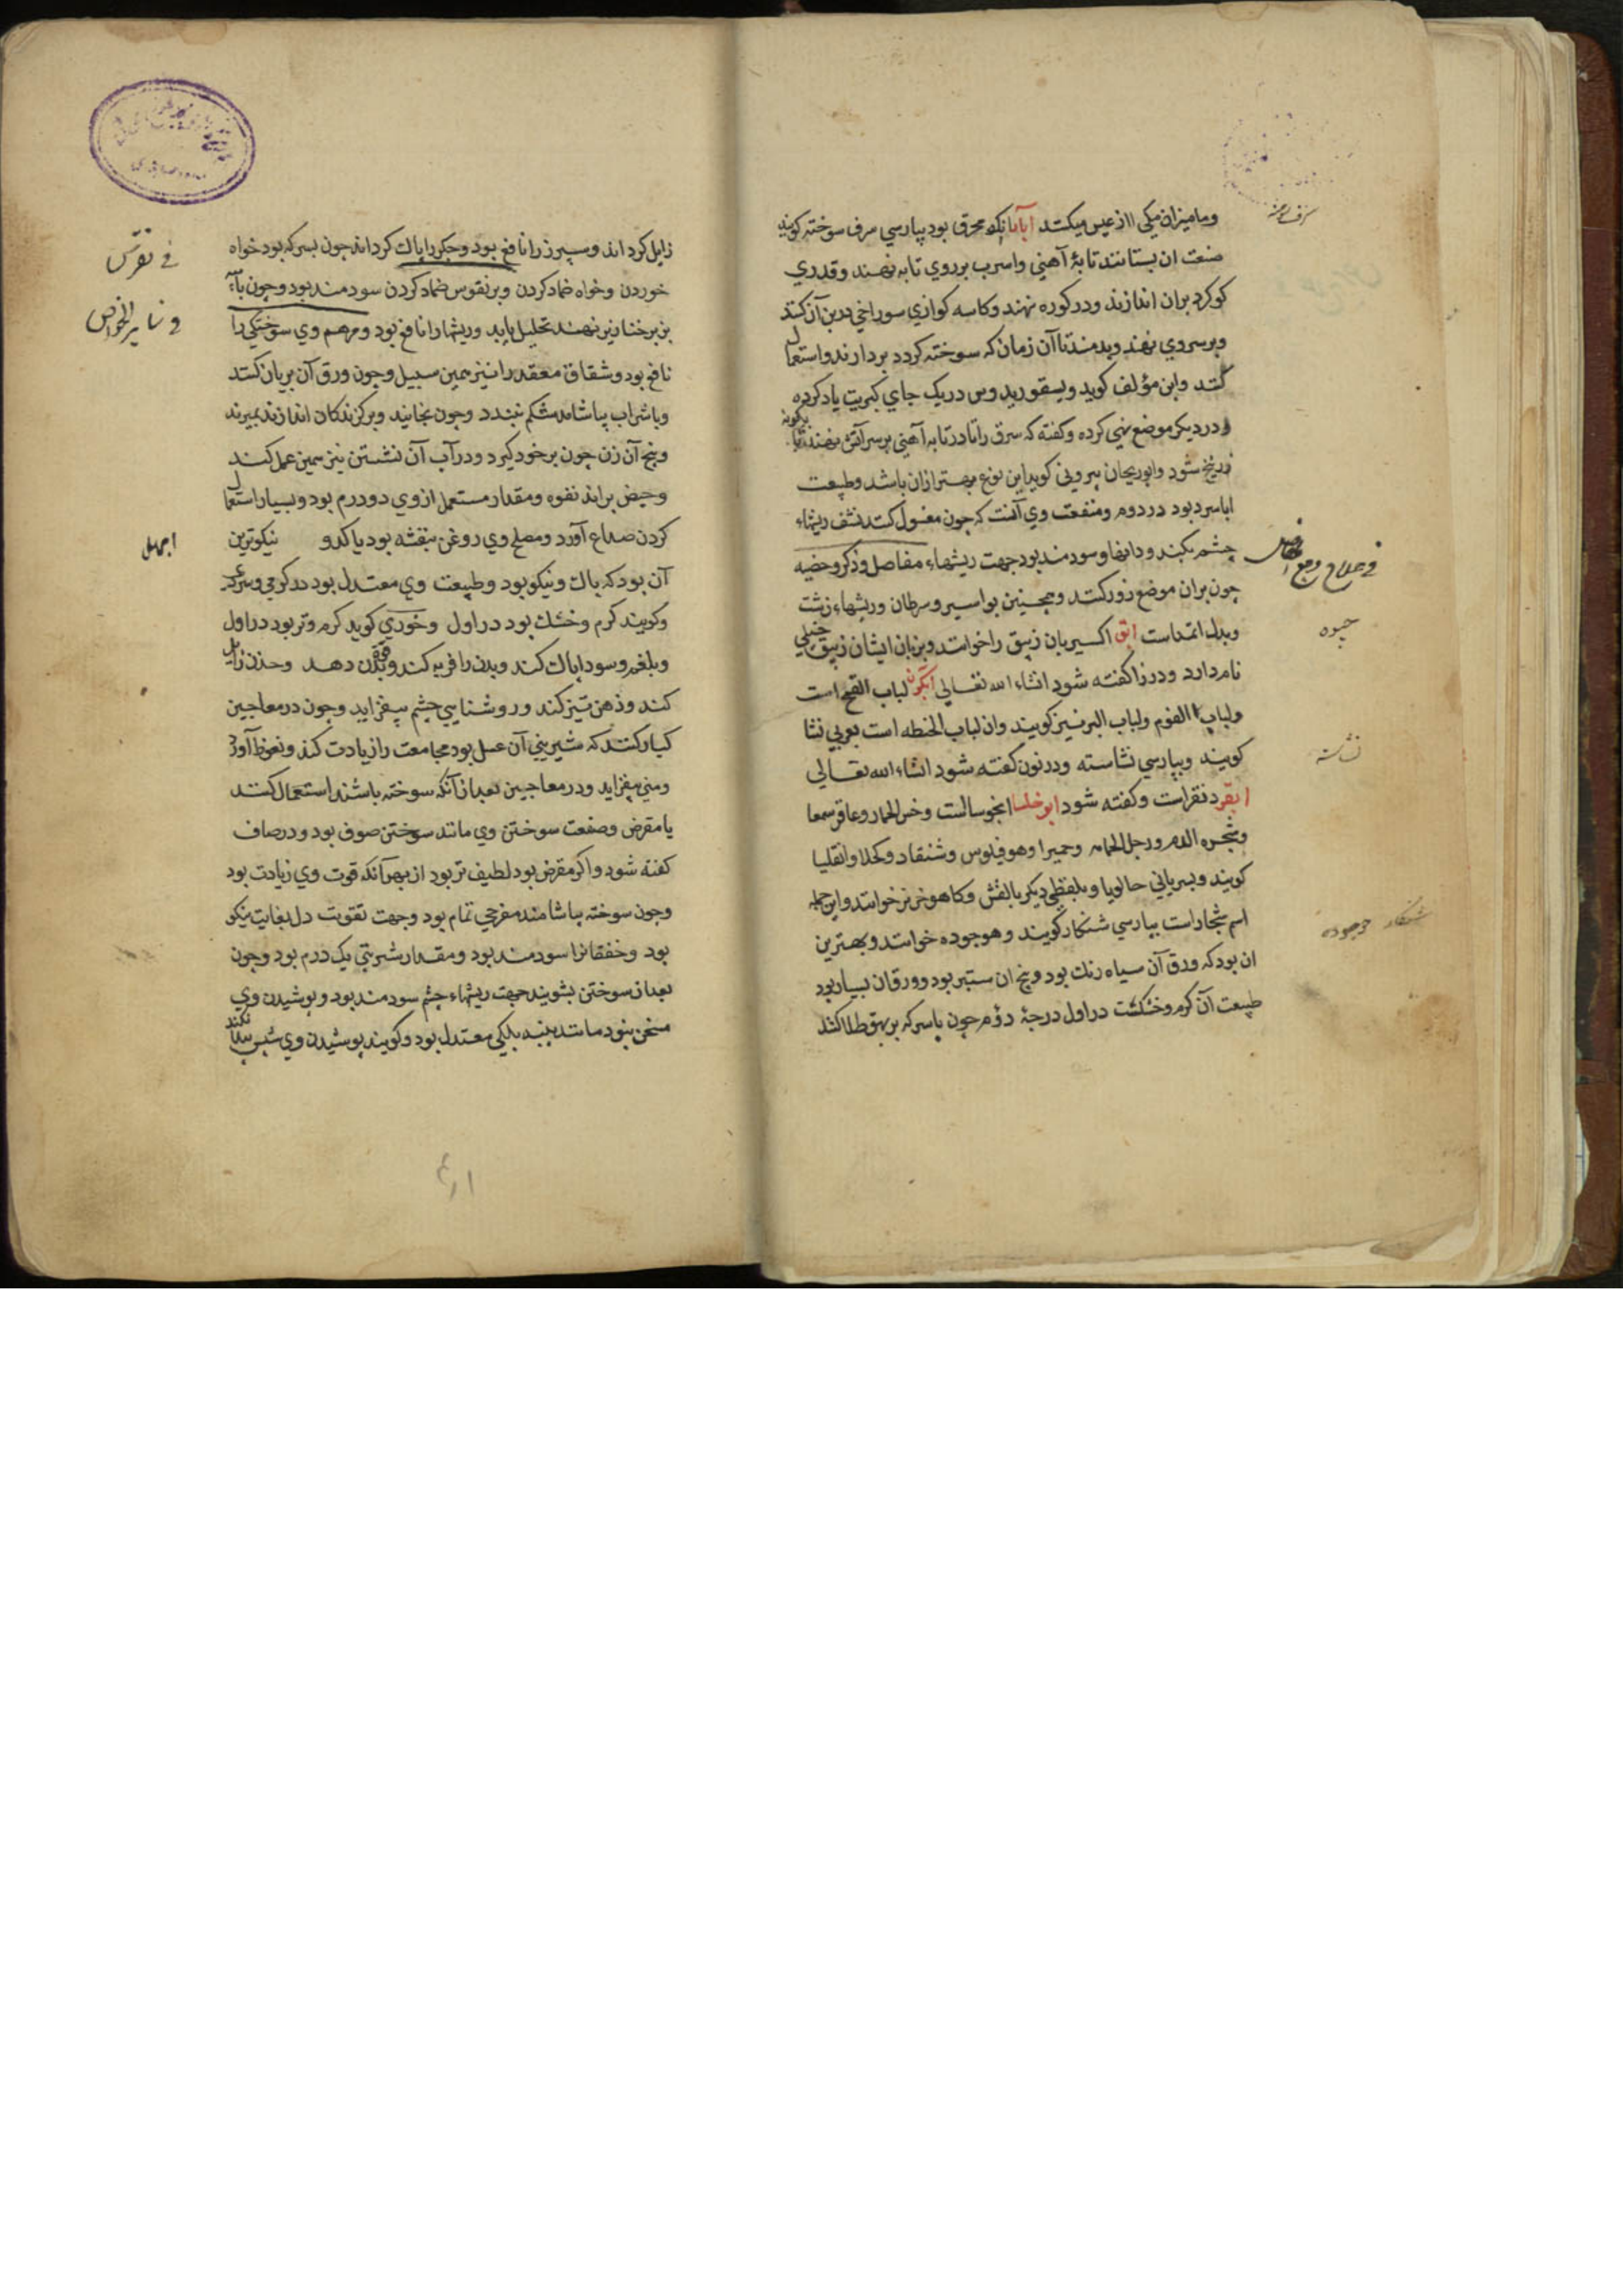 ومامیزان میکی ااز عیس میکنند ابآبا آنک محرق بود بپارسي سرف سوخته کویند
صنعت ان بستانند تابۀ آهني واسرب بر روي تابه نهند وقدري
کوکرد بران اندازند ودر کوره نهند وکاسه کوازي سوراخي در بن آن کنند
وبر سر وي نهند وبدمند تا آن زمان که سوخته کردد بردارند واستعمال
کنند وابن مؤلف کوید ویسقوریدوس در یک جاي کبریت یاد کرده
ودر دیکر موضع نهي کرده وکفته که سرق را تا در تابه آهني بر سر آتش نهند تا برکونه
زرنیخ شود وابوریحان بیروني کوید این نوع بهتر ازان باشد وطبیعت
ابا سرد بود در دوم ومنفعت وي آنست که چون مغسول کنند نشف ریشهاء
چشم بکند ودانها وسودمند بود جهت ریشهاء مفاصل وذکر وخصیه
چون بران موضع ذرور کنند وهمچنین بواسیر وسرطان وریشهاء زشت
وبدل اثمد است ابق اکسیریان زیبق را خوانند وبزبان ایشان زیبق
نام دارد ودر زا کفته شود انشاء الله تعالي ابکون لباب القمح است
ولباب الفوم ولباب البر نیز کویند وان لباب الحنطه است بعربي نشا
کویند وبپارسي نشاسته ودر نون کفته شود انشاء الله تعالي
ابقر دنقر است وکفته شود ابو خلسا انجوسا است وخس الحمار وعاقر شمعا
وشجره الدم ورجل الحمامه وحمیرا وهوفیلوس وشنقار وکحلا وانقلیا
کویند وبسریاني حالوبا وبلفظي دیکر بالفش وکاهو خرنز خوانند واین جمله
اسم شنجار است بپارسي شنکار کویند وهوجوده خوانند وبهترین
ان بود که ورق آن سیاه رنك بود وبیخ ان ستبر بود وورق ان بسیار بود
طبیعت آن کرم وخشکست در اول درجۀ دؤم چون باسرکه بر بهق طلا کنند
في علاج وجع المفاصل
جیوه
نشاسته
شنکار هوجوده
زایل کرداند وسپرز را نافع بود وجکر را پاك کرداند چون بسرکه بود خواه
خوردن وخواه ضماد کردن وبر نقرس ضماد کردن سودمند بود وچون باپیه
بز بر خنازیر نهند تحلیل یابد وریشها را نافع بود ومرهم وي سوختکي را
نافع بود وشقاق مقعد را نیز همین سبیل وچون ورق آن بریان کنند
وباشراب بیاشامند شکم ببندد وچون بخایند وبر کزندکان اندازند بمیرند
وبیخ آن زن چون برخود کیرد ودر آب آن نشستن نیز همین عمل کند
وحیض براند بقوه ومقدار مستعمل از وي دو درم بود وبسیار استعمال
کردن صداع آورد ومصلح وي روغن بنفشه بود یا کدو نیکوترین
آن بود که پاك ونیکو بود وطبیعت وي معتدل بود در کرمي وسردي
وکویند کرم وخشك بود در اول وخوزي کوید کرم وتر بود در اول
وبلغم وسودا پاك کند وبدن را فربه کند وبدن قوة دهد وحزن زایل
کند وذهن تیز کند وروشنایي چشم بیفزاید وچون در معاجین
کبار کنند که شیریني آن عسل بود مجامعت را زیادت کند ونعوظ آورد
ومني بیفزاید ودر معاجین بعد از آنکه سوخته باشند استعمال کنند
یا مقرض وصفت سوختن وي مانند سوختن صوف بود ودر صاف
کفته شود واکر مقرض بود لطیف تر بود از بهر آنکه قوت وي زیادت بود
وچون سوخته بیاشامند مفرحي تمام بود وجهت تقویت دل بغایت نیکو
بود وخفقان را سودمند بود ومقدار شربتي یک درم بود وچون
بعد از سوختن بشویند جهت ریشهاء چشم سودمند بود وپوشیدن وي
مسخن نبود مانند پنبه بلکي معتدل بود وکویند پوشیدن وي شپش پیدا نکند
في نقرس
و سایر الخواص